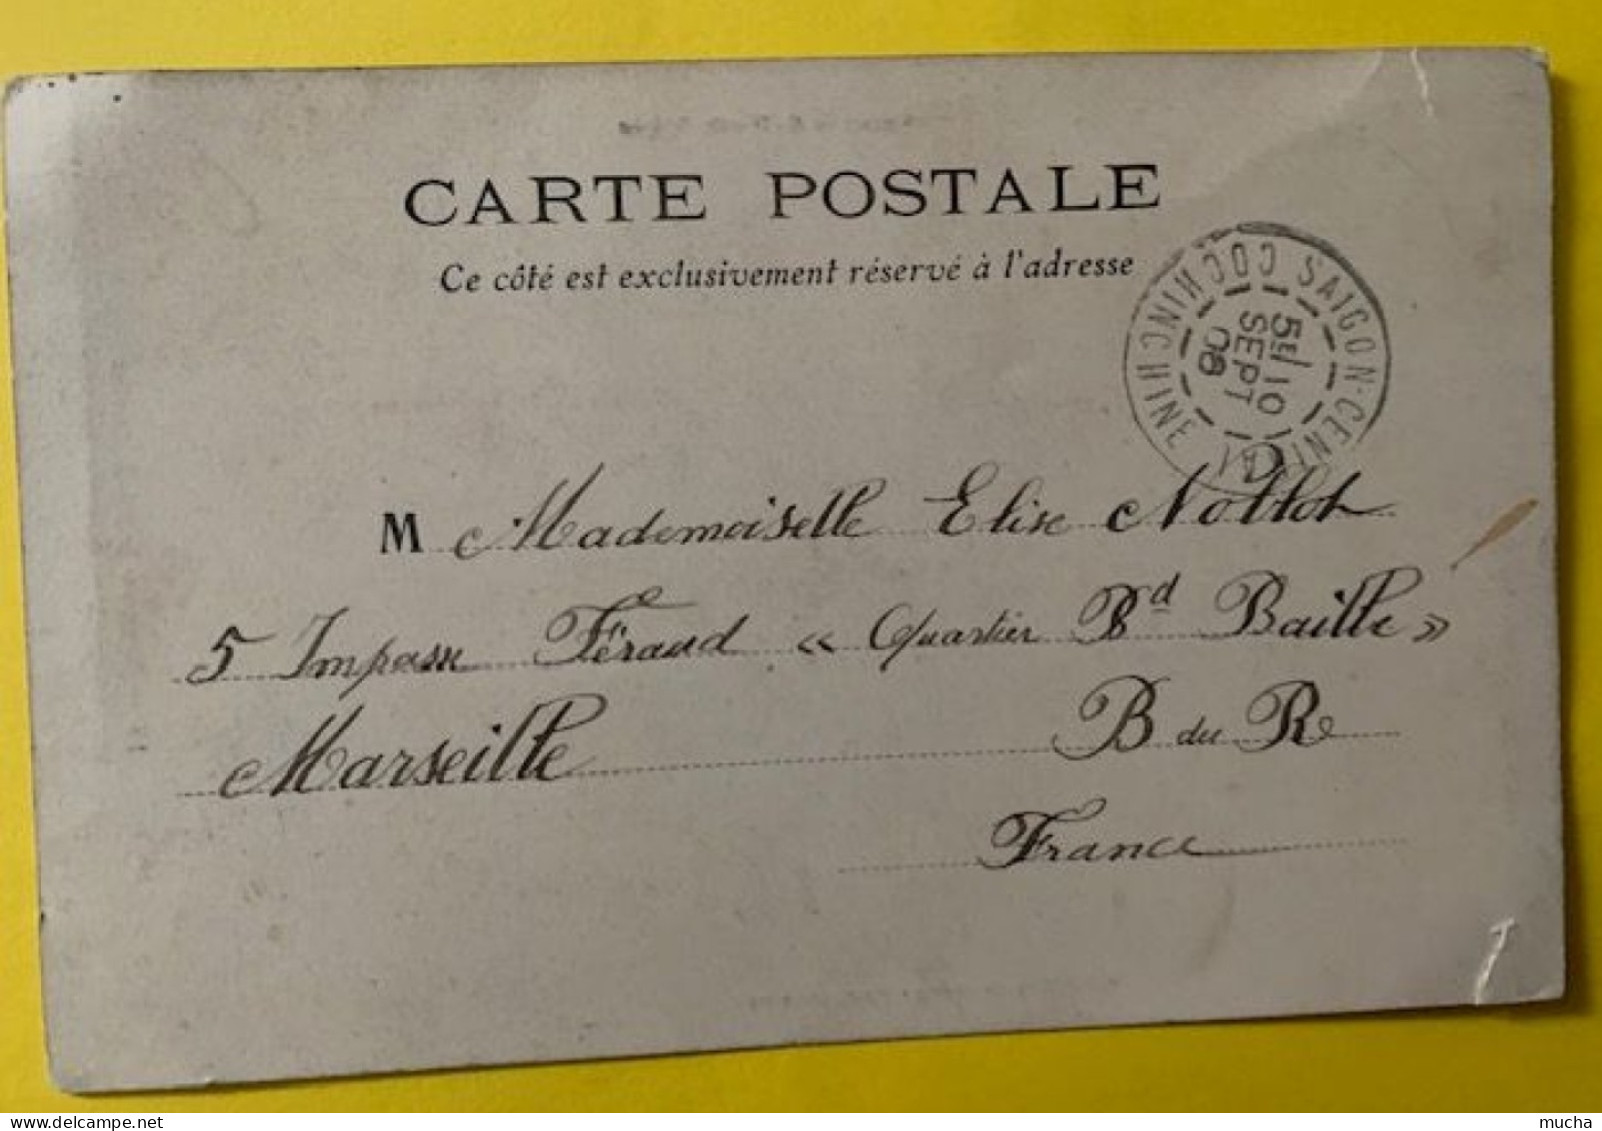 CARTE POSTALE
Ce côté est exclusivement réservé à l'adresse
SAIGON-CENTRAL COCHINCHINE
5E/10
SEPT
08
M Mademoiselle Elise
5 Impasse Féraud « Quartier Bd Baille »
Marseille B du R
France
mucha